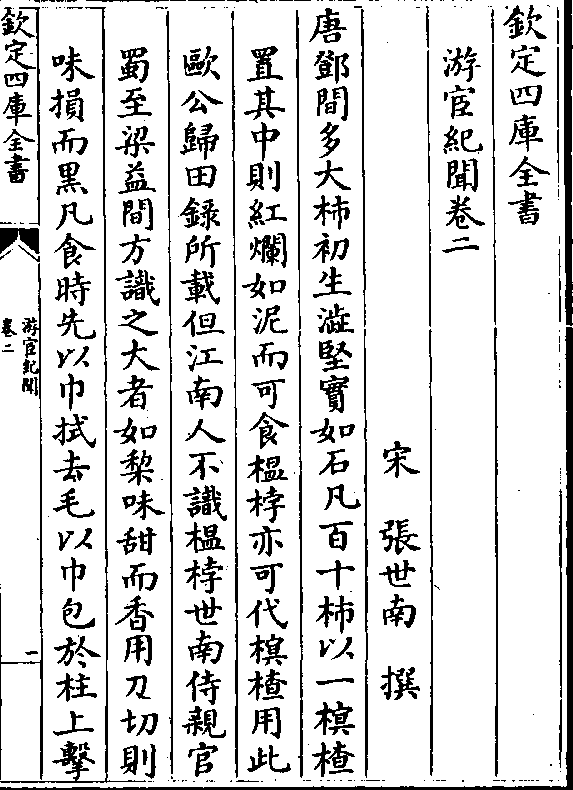 欽定四庫全書
游宦紀聞卷二
宋 張世南 撰
唐鄧間多大柿初生澁堅實如石凡百十柿以一榠樝
置其中則紅爛如泥而可食榲桲亦可代榠樝用此
歐公歸田録所載但江南人不識榲桲世南侍親官
蜀至梁益間方識之大者如梨味甜而香用刀切則
味損而黒凡食時先以巾拭去毛以巾包於柱上擊
欽定四庫全書
游宦紀聞
卷二
一